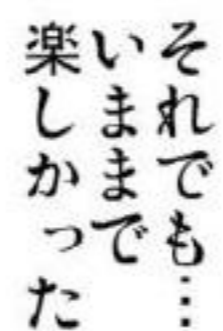 それでも…
いままで
楽しかった